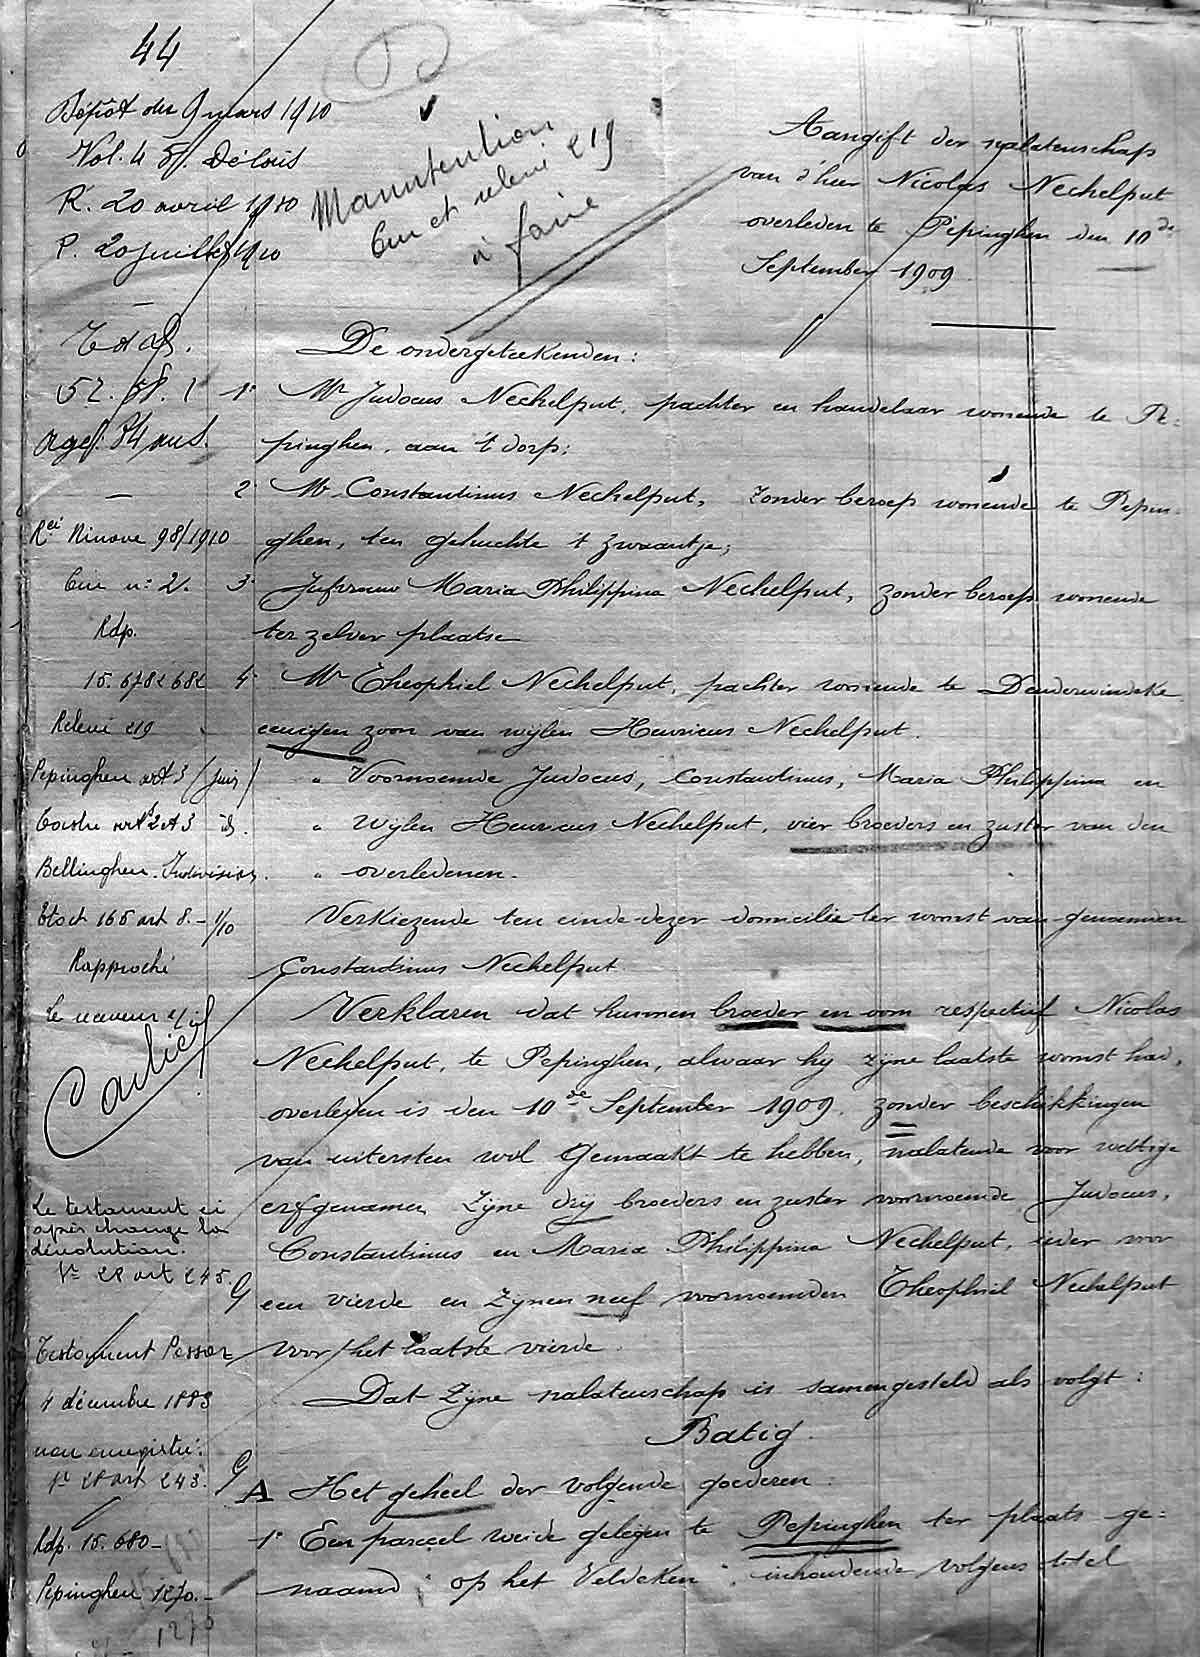 44
Dépôt du 9 mars 1910
Vol. 4 Sf. Délais
R. 20 avril 1910
P. 20 juillet 1910
Manutention
et relevé 219
à faire
Aangift der nalatenschap
van d'heer Nicolas Nechelput
overleden te Pepinghen den 10de
September 1909
52. 58. 1
agé 84 ans.
Rei Ninove 98/1910
n: 21.
Rdp.
15. 678 & 682
Relevé 219
Pepinghen art 3 (juis)
2 et 3 id.
Bellinghen. Indivision.
165 art 8. - 1/10
Rapproché
Le receveur
Carlier
Le testament ci
après change la
dévolution.
Vr 28 art 245.
Testament
4 décembre 1883
non enregistré.
Vr 28 art 243.
Rdp. 15. 680 -
Pepinghen 1270. -
1270
De ondergeteekenden:
1° Mr Judocus Nechelput, pachter en handelaar wonende te Pe=
pinghen, aan 't dorp;
2° Mr Constantinus Nechelput, zonder beroep wonende te Pepin-
ghen, ten gehuchte 't Zwaantje;
3° Jufvrouw Maria Philippina Nechelput, zonder beroep wonende
ter zelver plaatse
4° Mr Theophiel Nechelput, pachter wonende te Denderwindeke
eenigen zoon van wijlen Henricus Nechelput.
" Voornoemde Judocus, Constantinus, Maria Philippina en
" Wijlen Henricus Nechelput, vier broeders en zuster van den
" overledenen.
Verkiezende ten einde dezer domicilie ter woonst van genoemden
Constantinus Nechelput.
Verklaren dat hunnen broeder en oom respectief Nicolas
Nechelput, te Pepinghen, alwaar hij zijne laatste woonst had,
overleden is den 10de September 1909. zonder beschikkingen
van uitersten wil gemaakt te hebben, nalatende voor wettige
erfgenamen zijne drij broeders en zuster voornoemde Judocus,
Constantinus en Maria Philippina Nechelput, ieder voor
een vierde en zijnen neef voornoemden Theophiel Nechelput
voor het laatste vierde.
Dat zijne nalatenschap is samengesteld als volgt:
Batig.
A Het geheel der volgende goederen:
1° Een parceel weide gelegen te Pepinghen ter plaats ge=
naamd " op het Veldeken ", inhoudende volgens titel